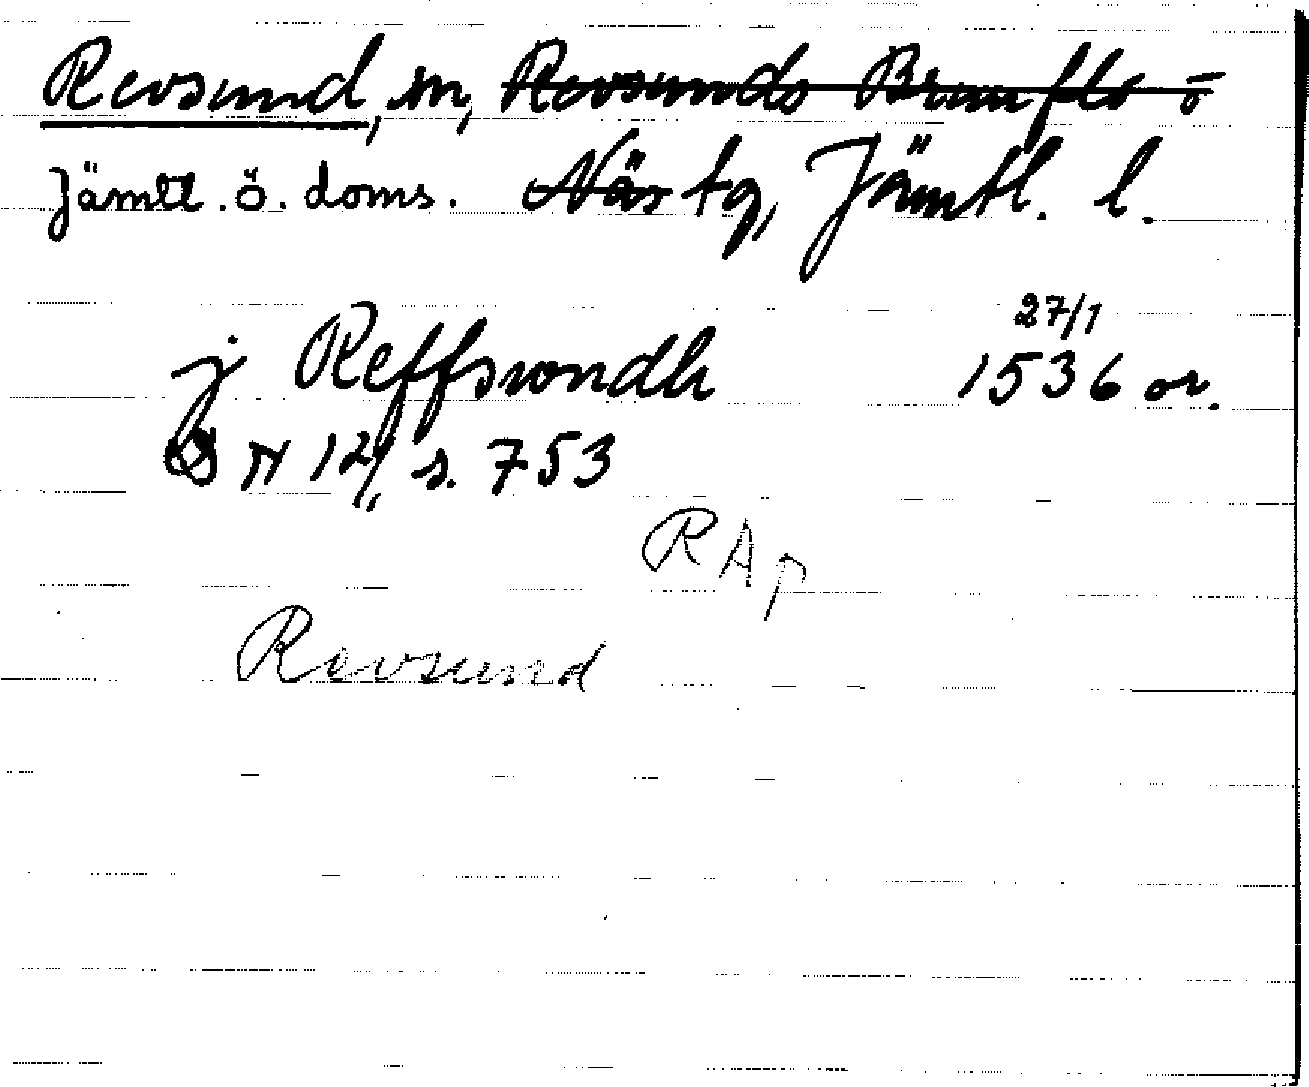 Revsund, sn, Revsunds Brunflo o
Jämtl. ö. doms. Näs tg, Jämtl. l.
27/1
j Reffswndh 1536 or.
DN 12, s. 753
RAp
Revsund